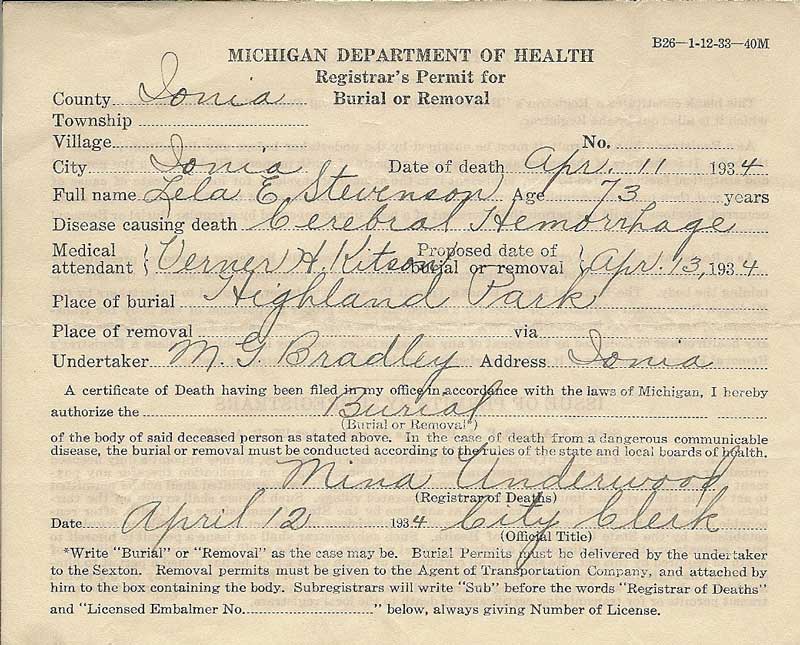 B26—1-12-33—40M
MICHIGAN DEPARTMENT OF HEALTH
Registrar's Permit for
County Ionia Burial or Removal
Township
Village No.
City Ionia Date of death Apr. 11 1934
Full name Lela E. Stevenson Age 73 years
Disease causing death Cerebral Hemorrhage
Medical attendant } Verner H. Kitson Proposed date of burial or removal } Apr. 13, 1934
Place of burial Highland Park
Place of removal via
Undertaker M. G. Bradley Address Ionia
A certificate of Death having been filed in my office in accordance with the laws of Michigan, I hereby
authorize the Burial
(Burial or Removal*)
of the body of said deceased person as stated above. In the case of death from a dangerous communicable
disease, the burial or removal must be conducted according to the rules of the state and local boards of health.
Mina Underwood
(Registrar of Deaths)
Date April 12 1934 City Clerk
(Official Title)
*Write "Burial" or "Removal" as the case may be. Burial Permits must be delivered by the undertaker
to the Sexton. Removal permits must be given to the Agent of Transportation Company, and attached by
him to the box containing the body. Subregistrars will write "Sub" before the words "Registrar of Deaths"
and "Licensed Embalmer No. " below, always giving Number of License.